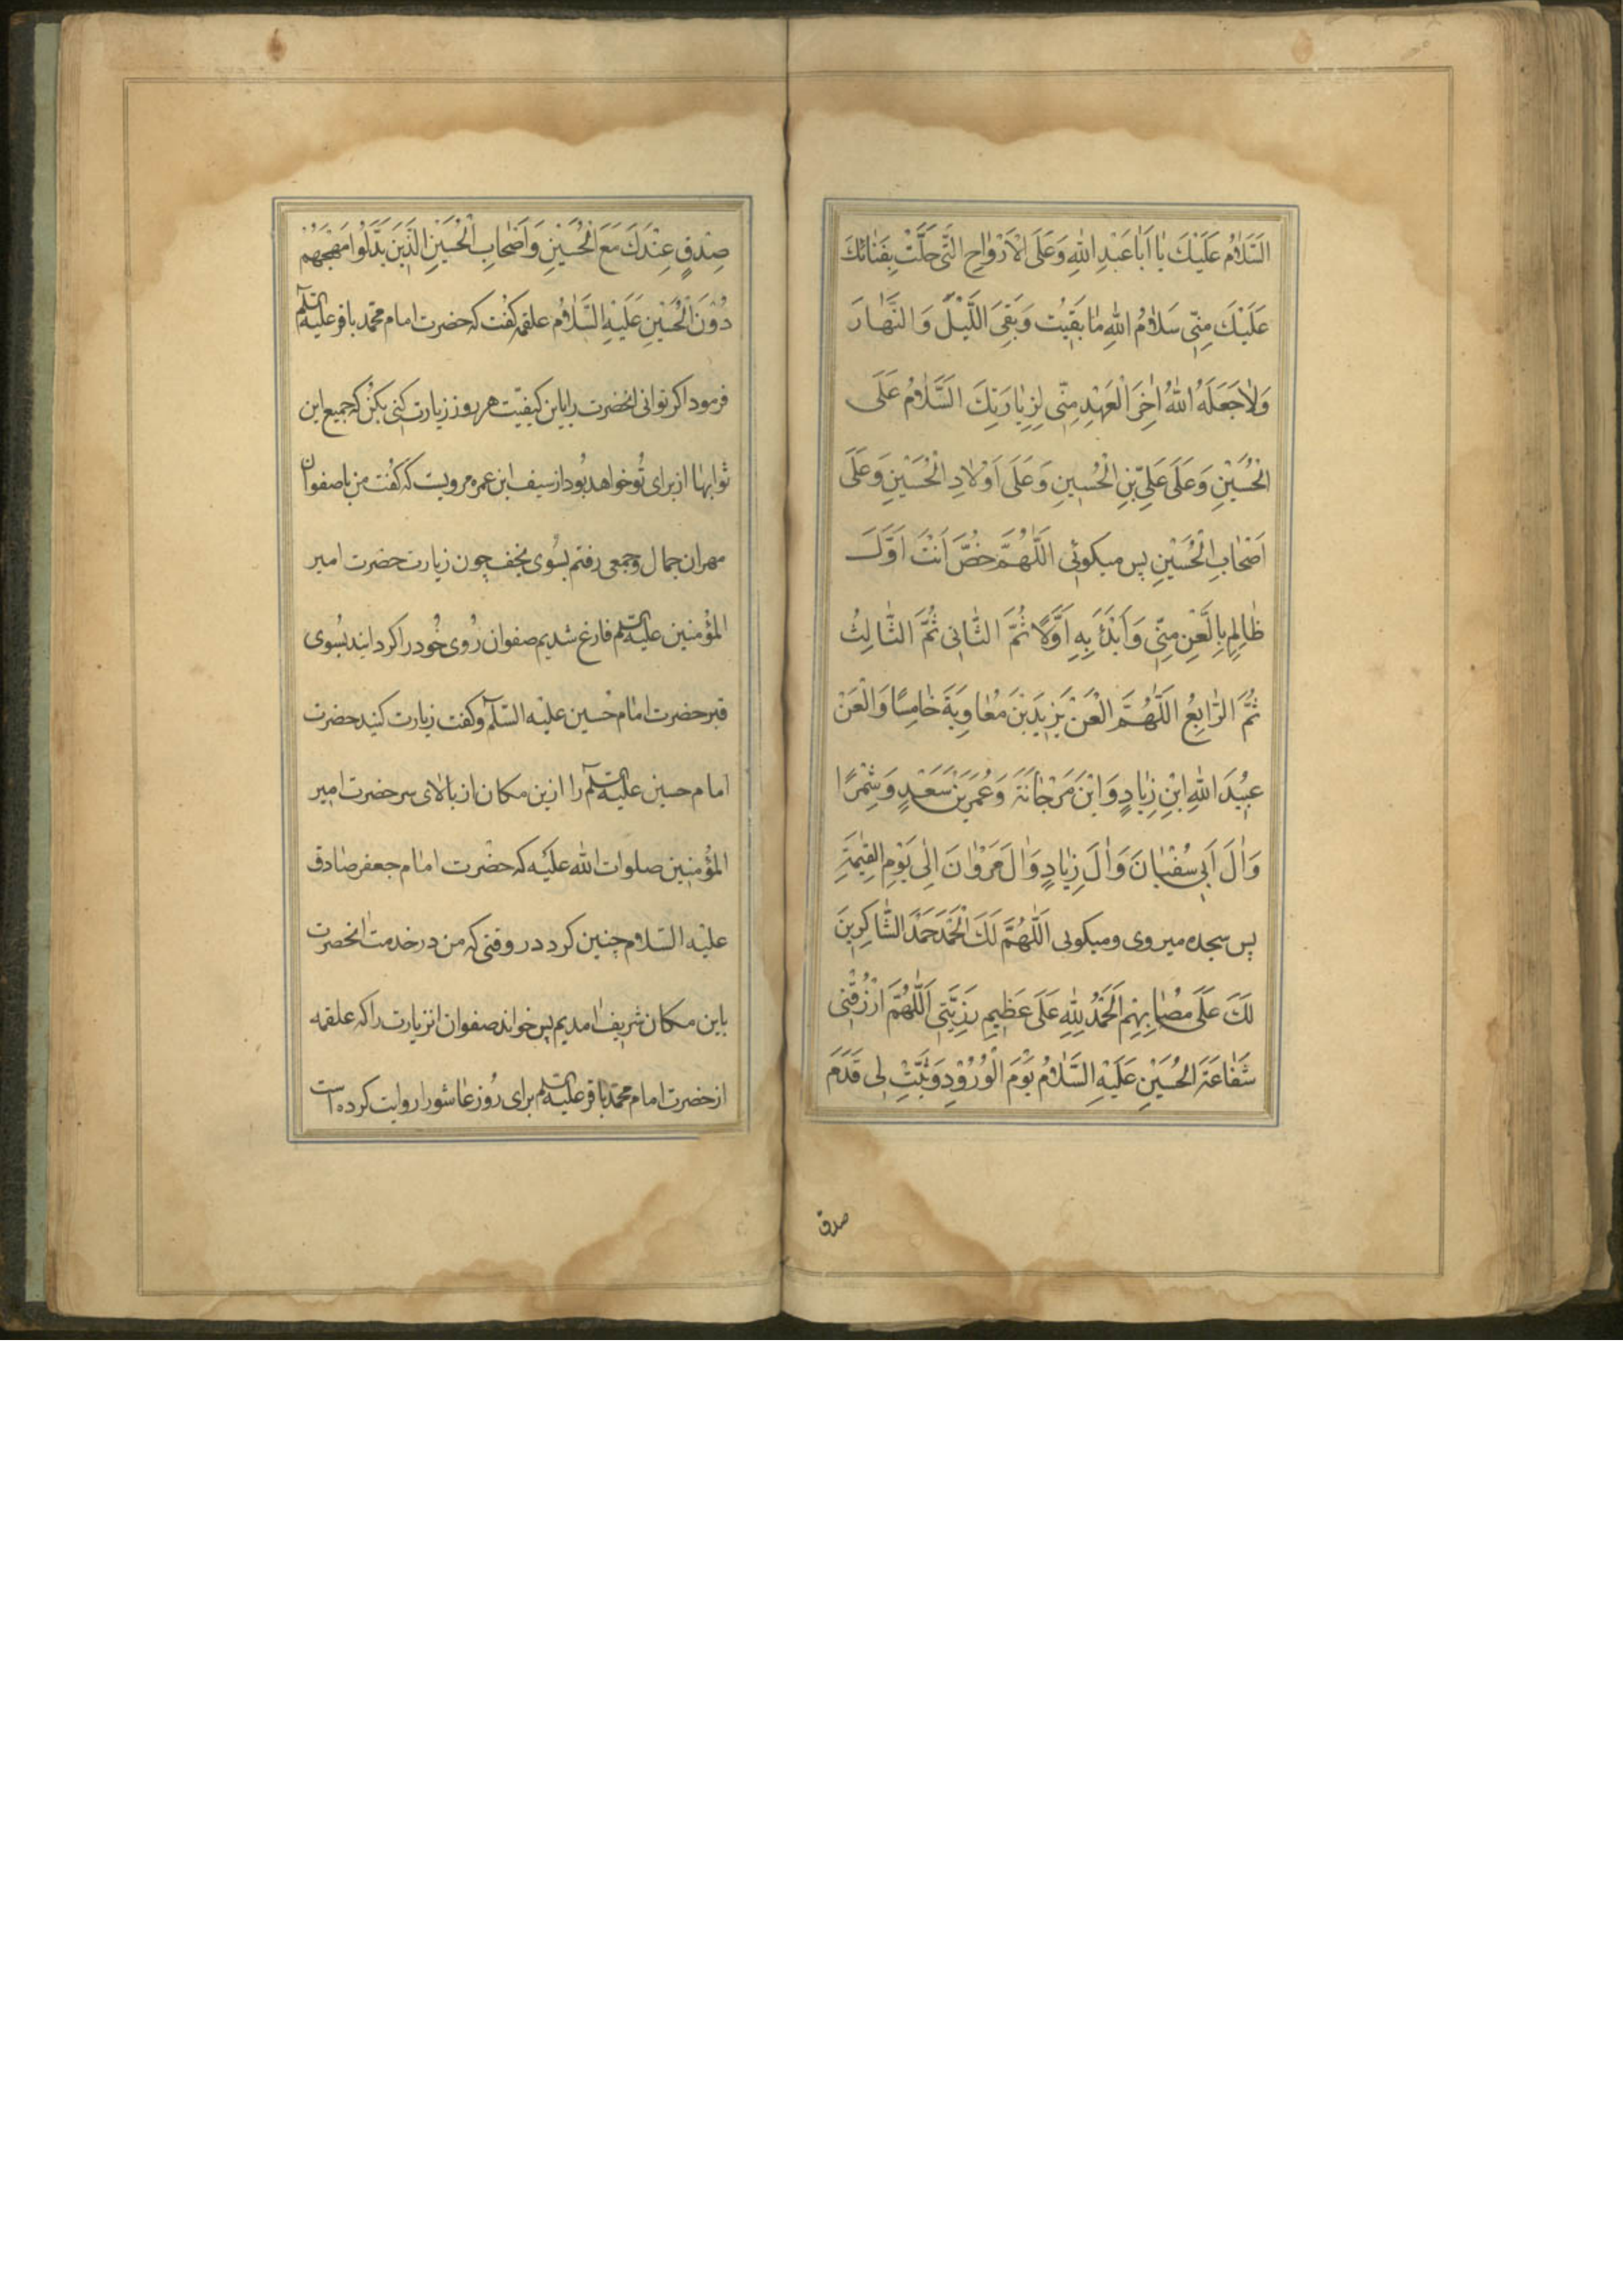 السَّلامُ عَلَيْكَ يٰا اَبا عَبْدِ اللهِ وَعَلَى الْاَرْوٰاحِ الَّتى حَلَّتْ بِفَنٰائِكَ
عَلَيْكَ مِنّى سَلامُ اللهِ مٰا بَقيتُ وَبَقِىَ اللَّيْلُ وَالنَّهٰارَ
وَلاٰ جَعَلَهُ اللهُ اٰخِرَ الْعَهْدِ مِنّى لِزِيٰارَتِكَ السَّلٰامُ عَلَى
الْحُسَيْنِ وَعَلَى عَلِىِّ بْنِ الْحُسَيْنِ وَعَلَى اَوْلٰادِ الْحُسَيْنِ وَعَلَى
اَصْحٰابِ الْحُسَيْنِ پس ميكوئى اللّٰهُمَّ خُصَّ اَنْتَ اَوَّلَ
ظٰالِمٍ بِالَّعْنِ مِنّى وَابْدَءْ بِهِ اَوَّلًا ثُمَّ الثّٰانى ثُمَّ الثّٰالِثُ
ثُمَّ الرّٰابِعُ اللّٰهُمَّ الْعَنْ يَزيدَ بْنَ مُعٰاوِيَةَ خٰامِسًا وَالْعَنْ
عُبَيْدَ اللهِ ابْنِ زِيٰادٍ وَابْنَ مَرْجٰانَةَ وَعُمَرَ بْنَ سَعْدٍ وَشِمْرًا
وَاٰلَ اَبى سُفْيٰانَ وَاٰلَ زِيٰادٍ وَاٰلَ مَرْوٰانَ اِلٰى يَوْمِ الْقِيٰمَةِ
پس سجده ميروى وميكوئى اَللّٰهُمَّ لَكَ الْحَمْدُ حَمْدَ الشّٰاكِرينَ
لَكَ عَلَى مُصٰابِهِمْ اَلْحَمْدُ لِلّٰهِ عَلَى عَظيمِ رَزِيَّتى اَللّٰهُمَّ ارْزُقْنى
شَفٰاعَةَ الْحُسَيْنِ عَلَيْهِ السَّلٰامُ يَوْمَ الْوُرُوْدِ وَثَبِّتْ لى قَدَمَ
صدق
صِدْقٍ عِنْدَكَ مَعَ الْحُسَيْنِ وَاَصْحٰابِ الْحُسَيْنِ الَّذينَ بَذَلُوا مُهَجَهُمْ
دُوْنَ الْحُسَيْنِ عَلَيْهِ السَّلٰامُ علقمه گفت كه حضرت امام محمّد باقر عليه السّلم
فرمود اكر توانى انحضرت را باين كيفيّت هر روز زيارت كنى بكن كه جميع اين
ثوابها از براى تو خواهد بود از سيف ابن عمره مرويست كه گفت من با صفوان
مهران جمال وجمعى رفتم بسوى نجف چون زيارت حضرت امير
المؤمنين عليه السّلم فارغ شديم صفوان روى خود را كردانيد بسوى
قبر حضرت امام حسين عليه السّلم وكفت زيارت كنيد حضرت
امام حسين عليه السّلم را ازين مكان از بالاى سر حضرت امير
المؤمنين صلوات الله عليه كه حضرت امام جعفر صادق
عليه السّلام چنين كرد در وقتى كه من در خدمت انحضرت
باين مكان شريف امديم پس خواند صفوان انزيارت را كه علقمه
از حضرت امام محمّد باقر عليه السّلم براى روز عاشورا روايت كرده است